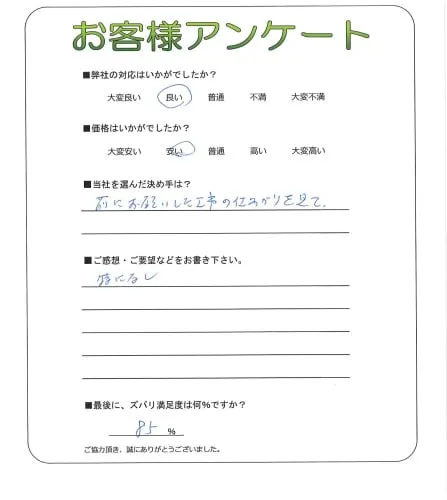 お客様アンケート
■弊社の対応はいかがでしたか？
大変良い 良い 普通 不満 大変不満
■価格はいかがでしたか？
大変安い 安い 普通 高い 大変高い
■当社を選んだ決め手は？
前にお願いした工事の仕上がりを見て、
■ご感想・ご要望などをお書き下さい。
特になし
■最後に、ズバリ満足度は何%ですか？
85 %
ご協力頂き、誠にありがとうございました。